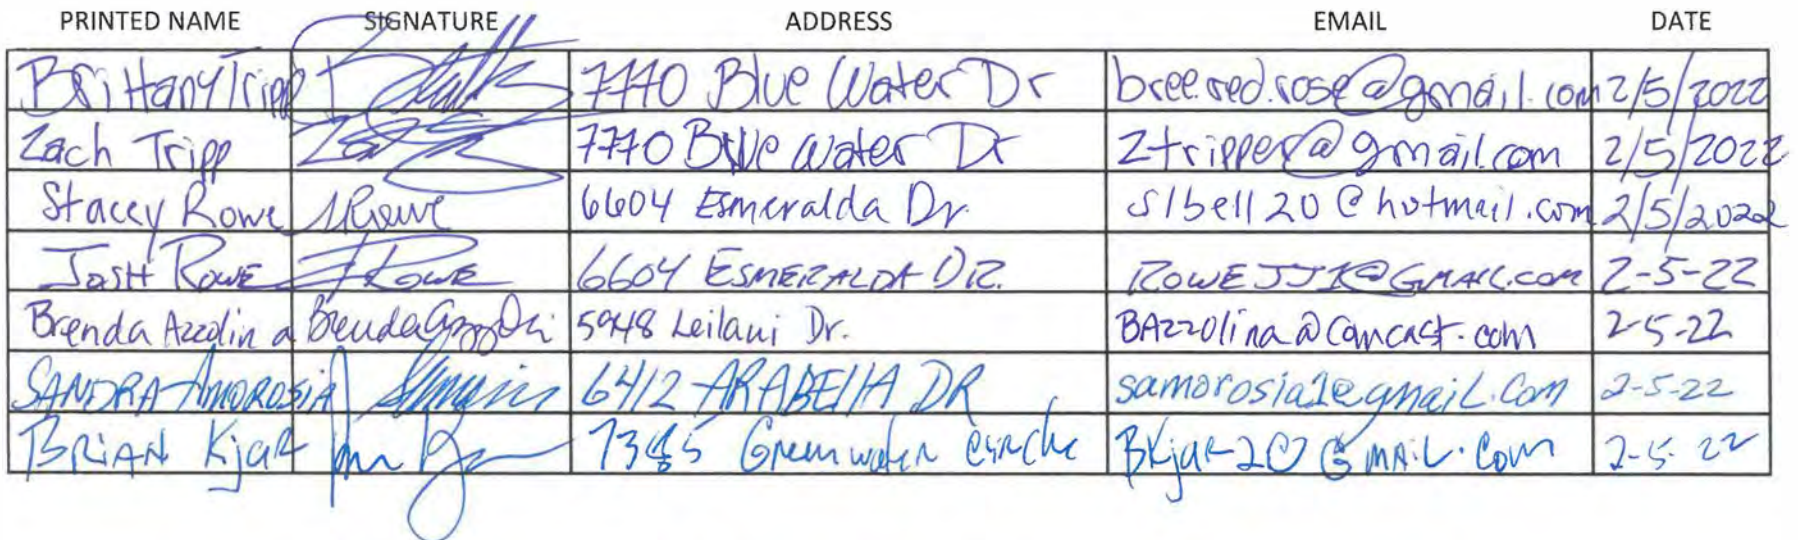 PRINTED NAME SIGNATURE ADDRESS EMAIL DATE
Brittany Tripp 7770 Blue Water Dr bree.red.rose@gmail.com 2/5/2022
Zach Tripp 7770 Blue Water Dr ztripper@gmail.com 2/5/2022
Stacey Rowe SRowe 6604 Esmeralda Dr. slbell20@hotmail.com 2/5/2022
JOSH ROWE J ROWE 6604 ESMERALDA DR. ROWEJJK@GMAIL.com 2-5-22
Brenda Azzolina Brenda Azzolini 5948 Leilani Dr. BAzzolina@Comcast.com 2-5-22
SANDRA AMOROSIA 6412 ARABEllA DR samorosia1@gmaiL.Com 2-5-22
BRiAN KjaR Greenwater Circle BKjar20@GMAiL.Com 2-5-22